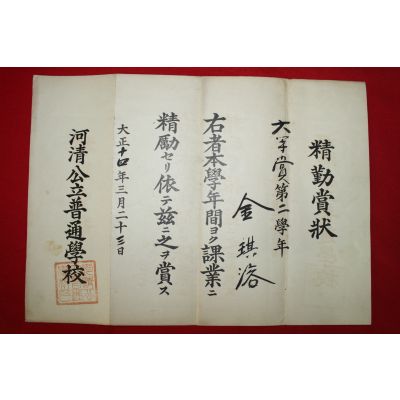 精勤賞狀
第二學年
金琪洛
右者本學年間ヨク課業ニ
精勵セリ依テ茲ニ之ヲ賞ス
大正十四年三月二十三日
河清公立普通學校